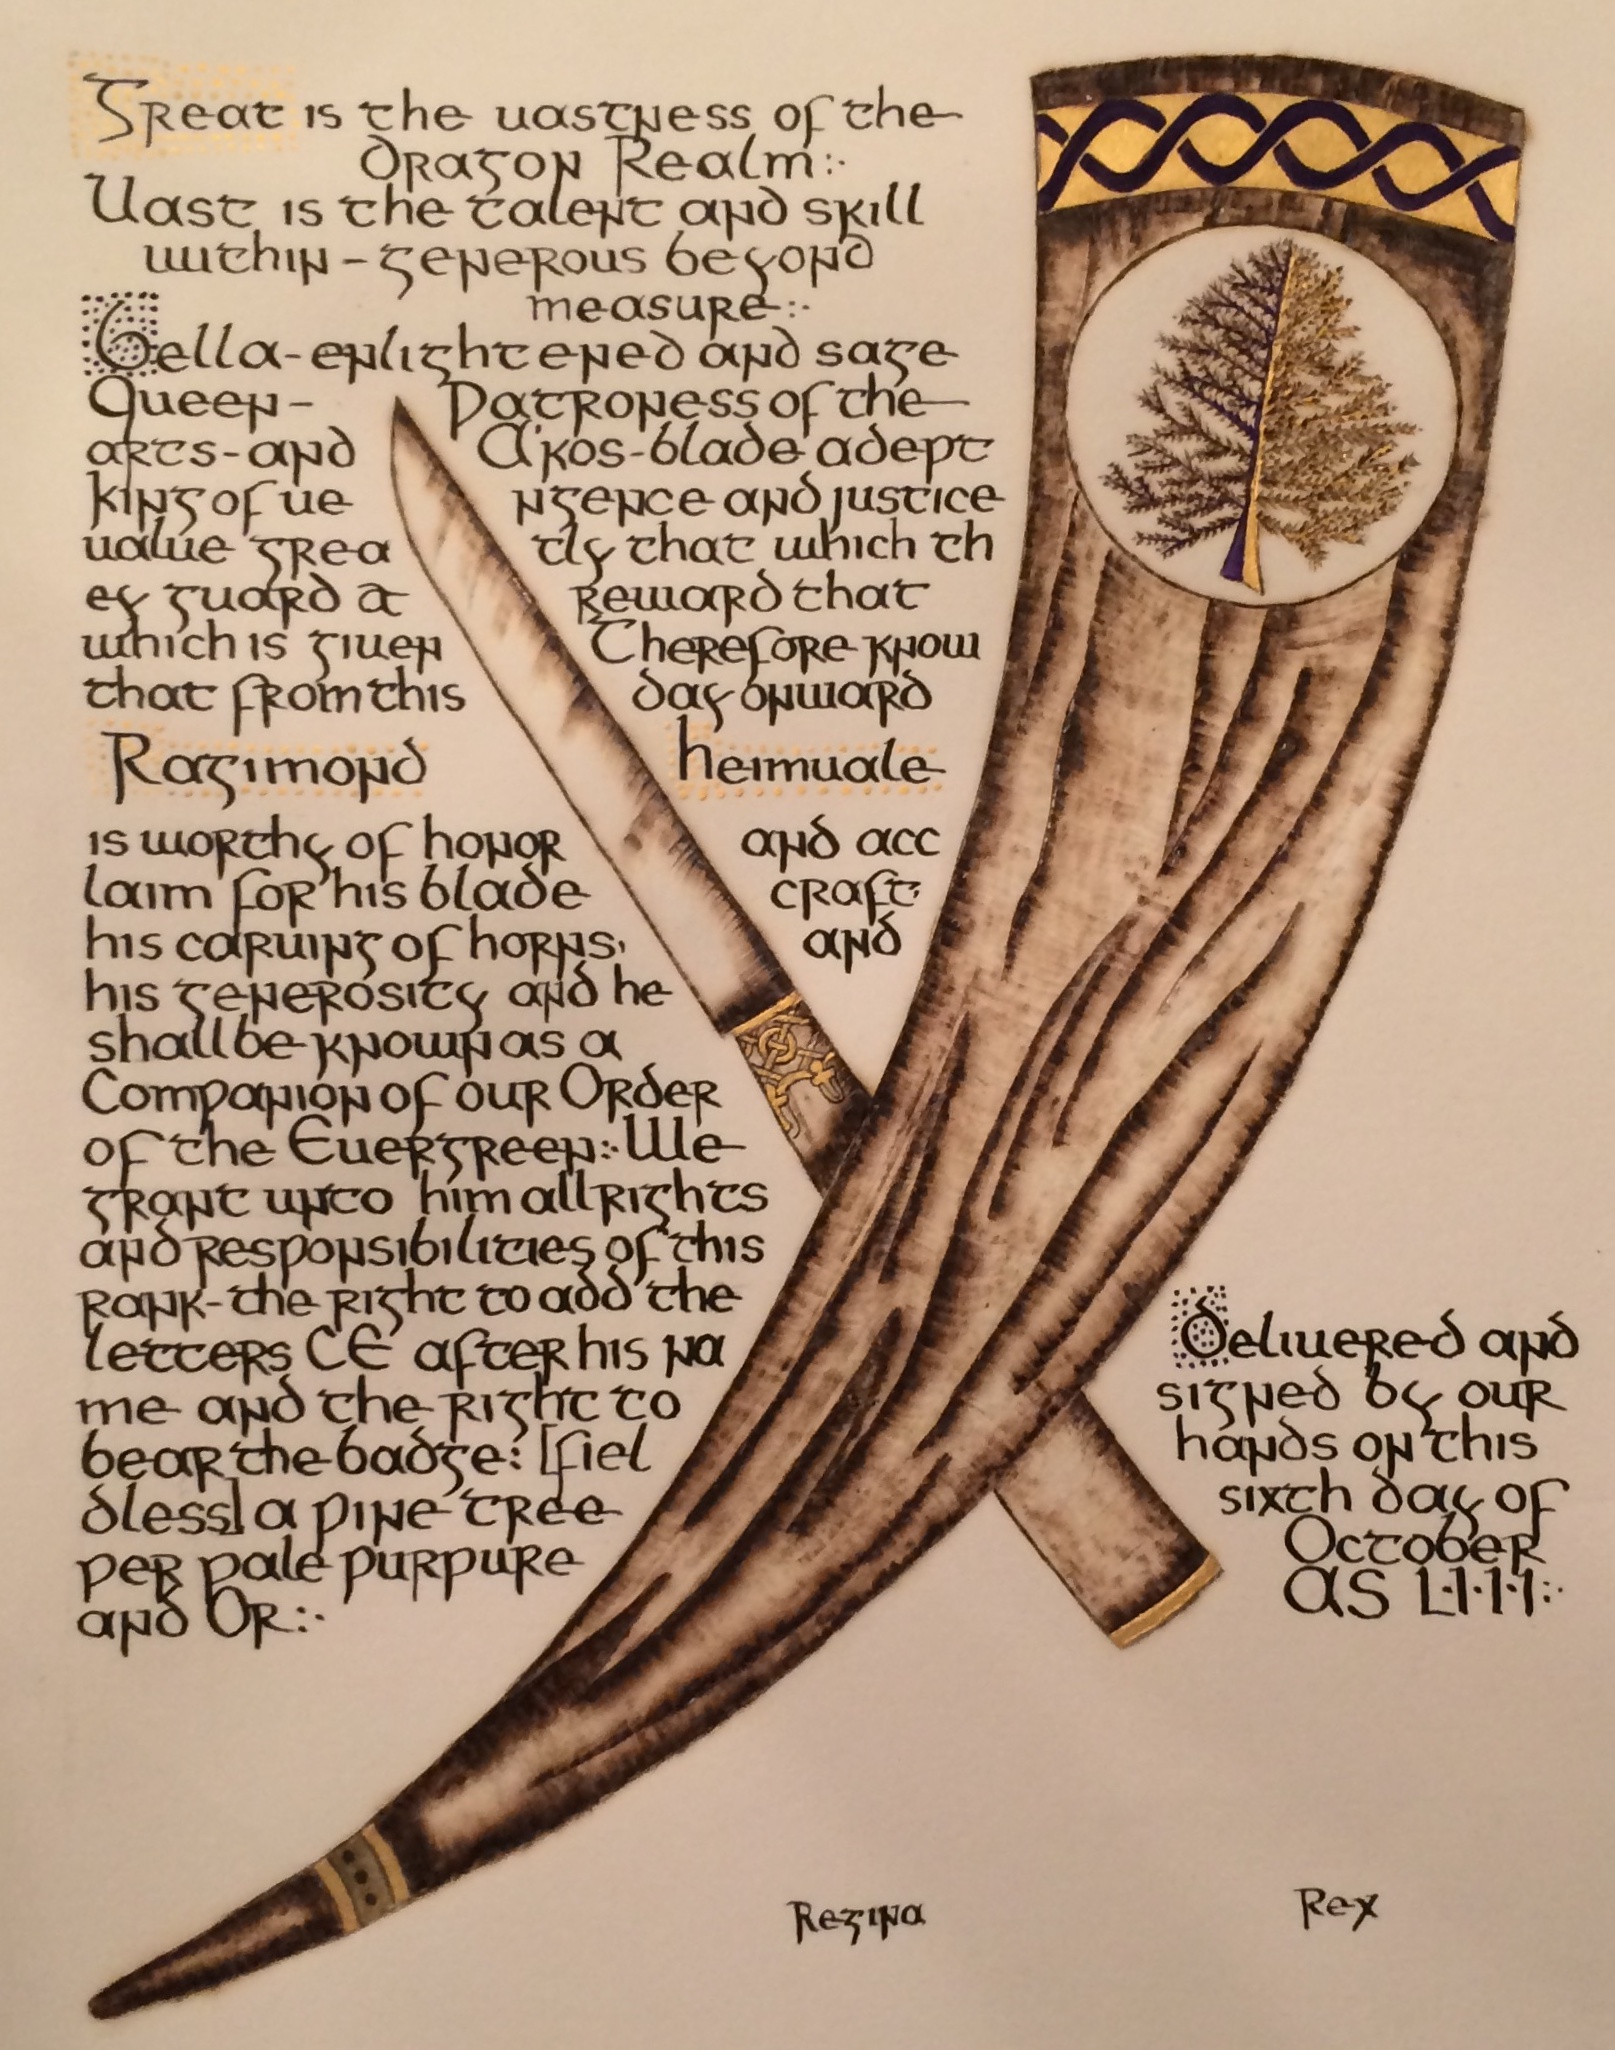 Great is the vastness of the
Dragon Realm:·
Vast is the talent and skill
within - generous beyond
measure:·
Bella - enlightened and sage
Queen - Patroness of the
arts - and A'kos - blade adept
king of ve ngence and justice
value grea tly that which th
ey guard & reward that
which is given Therefore know
that from this day onward
Ragimond Heimvale
is worthy of honor and acc
laim for his blade craft·
his carving of horns, and
his generosity and he
shall be known as a
Companion of our Order
of the Evergreen:· We
grant unto him all rights
and responsibilities of this
rank - the right to add the
letters CE after his na
me and the right to
bear the badge: [fiel
dless] a pine tree
per pale purpure
and Or:·
Delivered and
signed by our
hands on this
sixth day of
October
AS L·I·I·I:·
Regina Rex